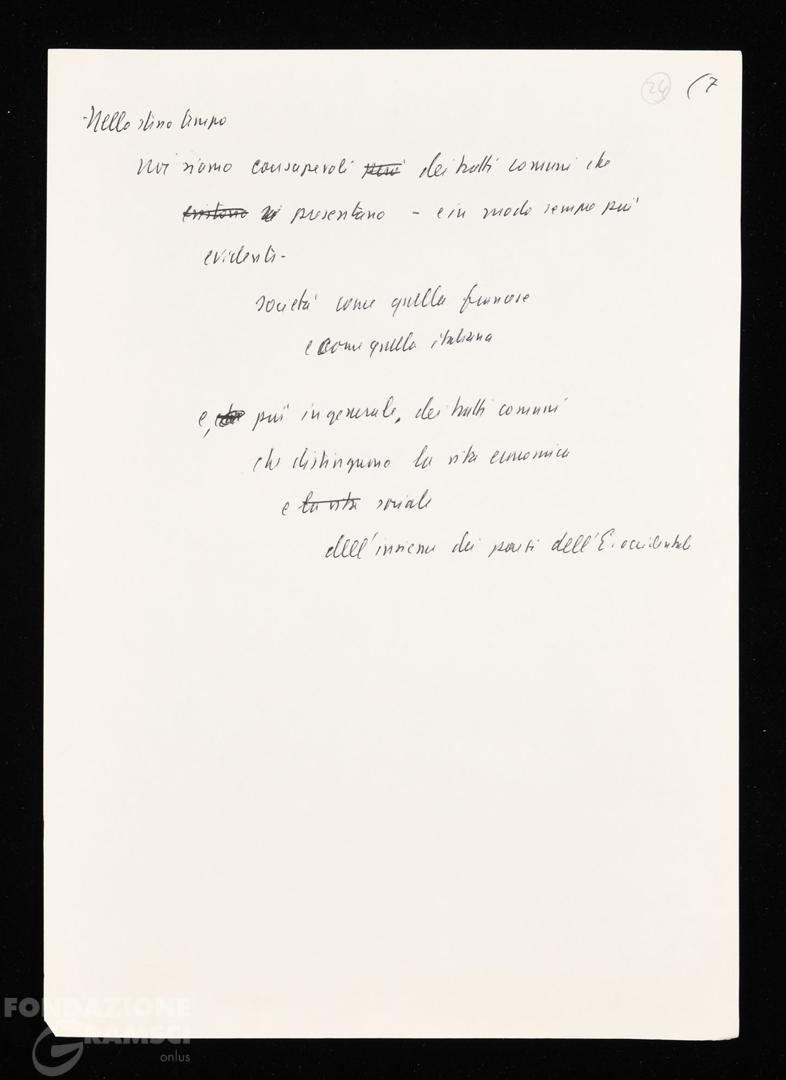 24 (7
Nello stesso tempo
noi siamo consapevoli però dei tratti comuni che
esistono si presentano – e in modo sempre più
evidenti –
società come quella francese
e come quella italiana
e, più in generale, dei tratti comuni
che distinguono la vita economica
e la vita sociale
dell'insieme dei paesi dell'E. occidentale
FONDAZIONE
GRAMSCI
onlus